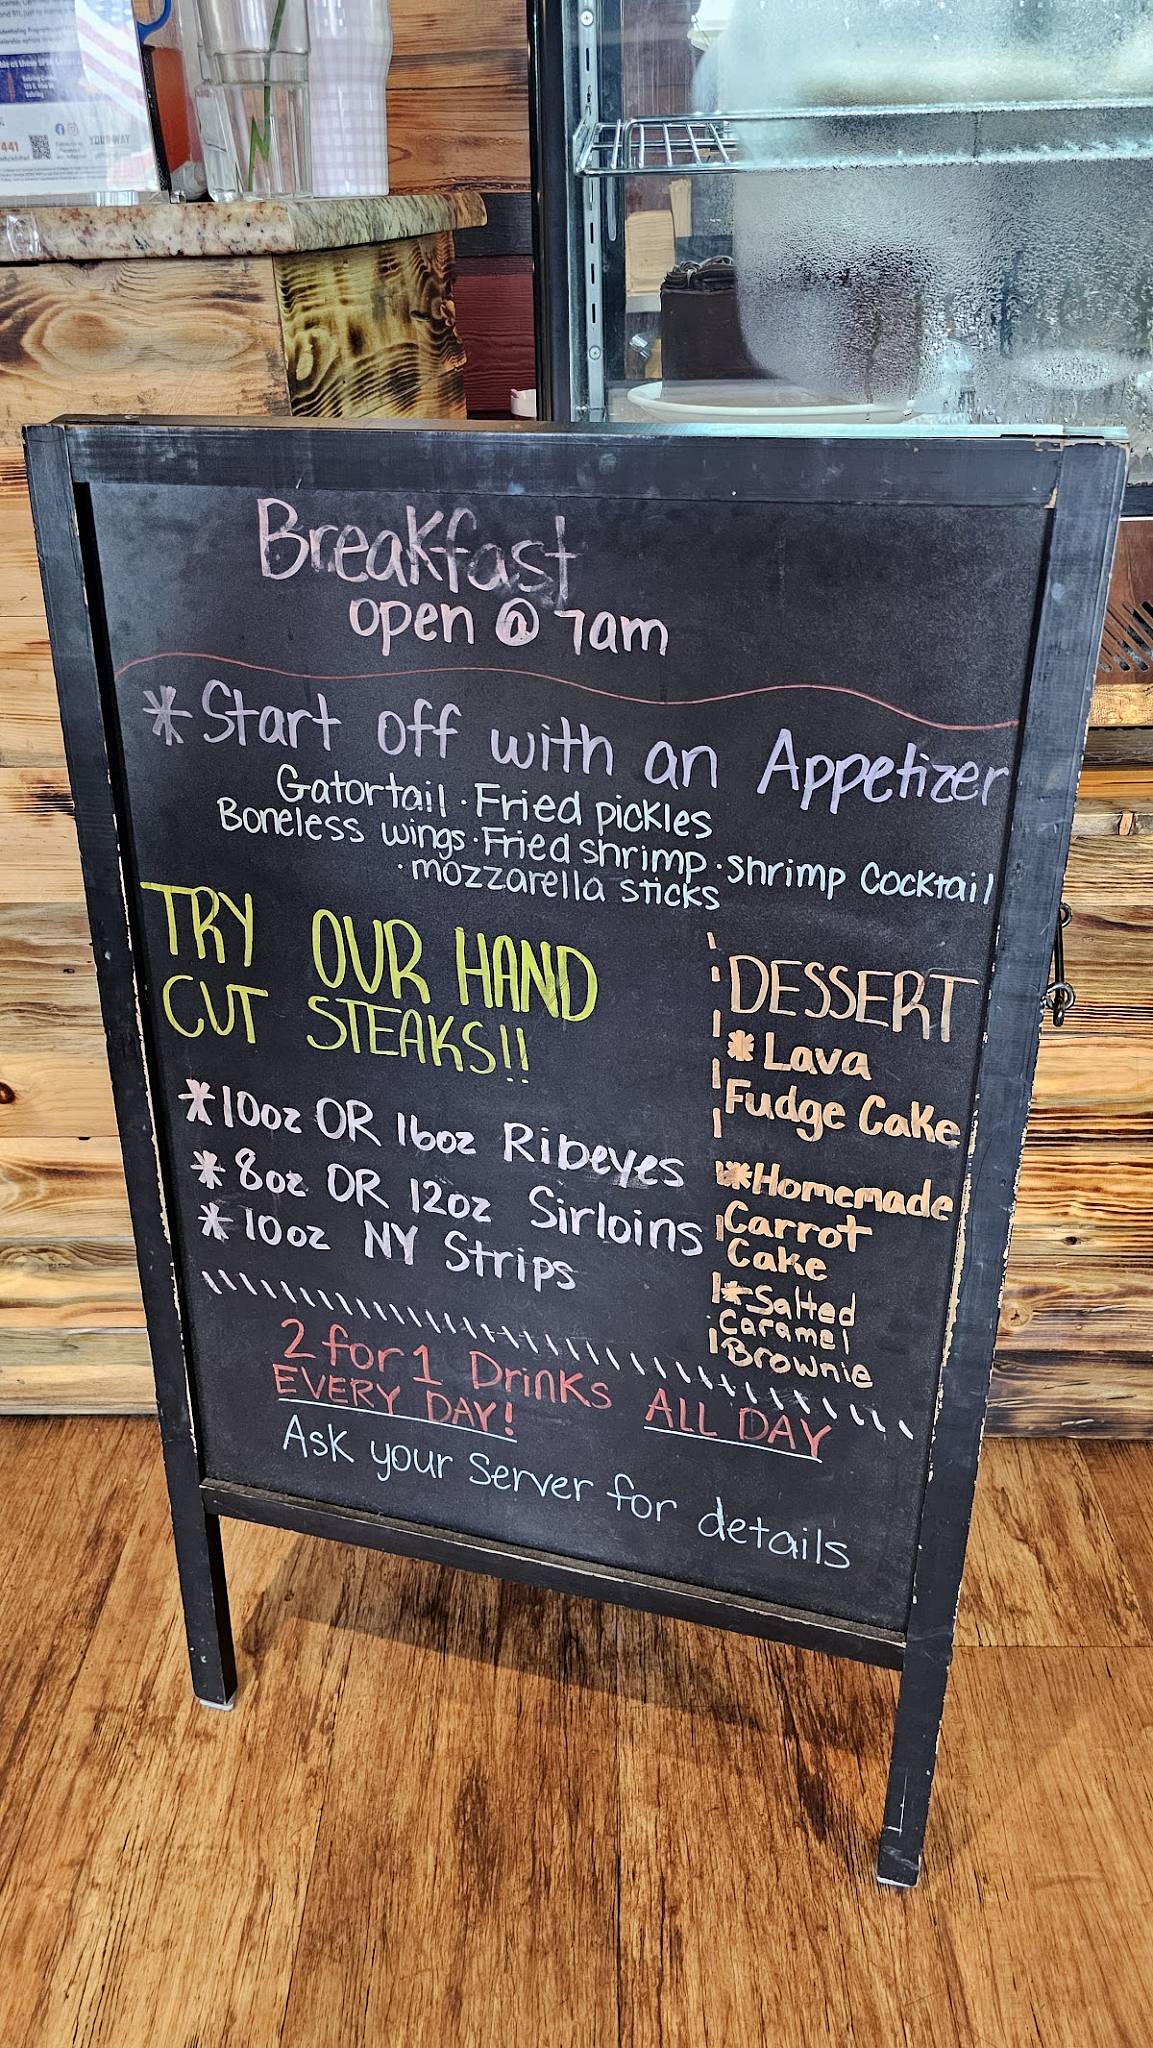 YOUR WAY
441
Breakfast
open @ 7am
* Start off with an Appetizer
Gatortail · Fried pickles
Boneless wings · Fried shrimp · shrimp Cocktail
· mozzarella sticks
TRY OUR HAND
CUT STEAKS!!
* 10oz OR 16oz Ribeyes
* 8oz OR 12oz Sirloins
* 10oz NY Strips
DESSERT
* Lava
Fudge Cake
* Homemade
Carrot
Cake
* Salted
Caramel
Brownie
2 for 1 Drinks ALL DAY
EVERY DAY!
Ask your server for details